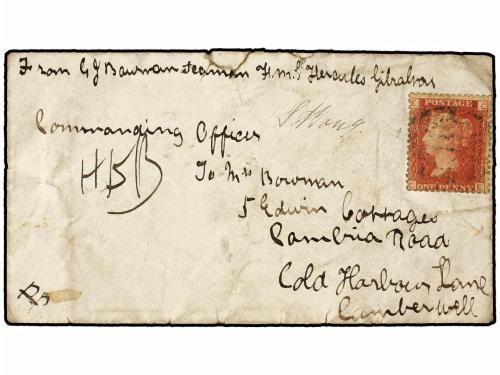 From G J Bowman Seaman H.M.S Hercules Gibraltar
Commanding Officer
To Mrs Bowman
5 Edwin Cottages
Cambria Road
Cold Harbour Lane
Camberwell
POSTAGE
ONE PENNY